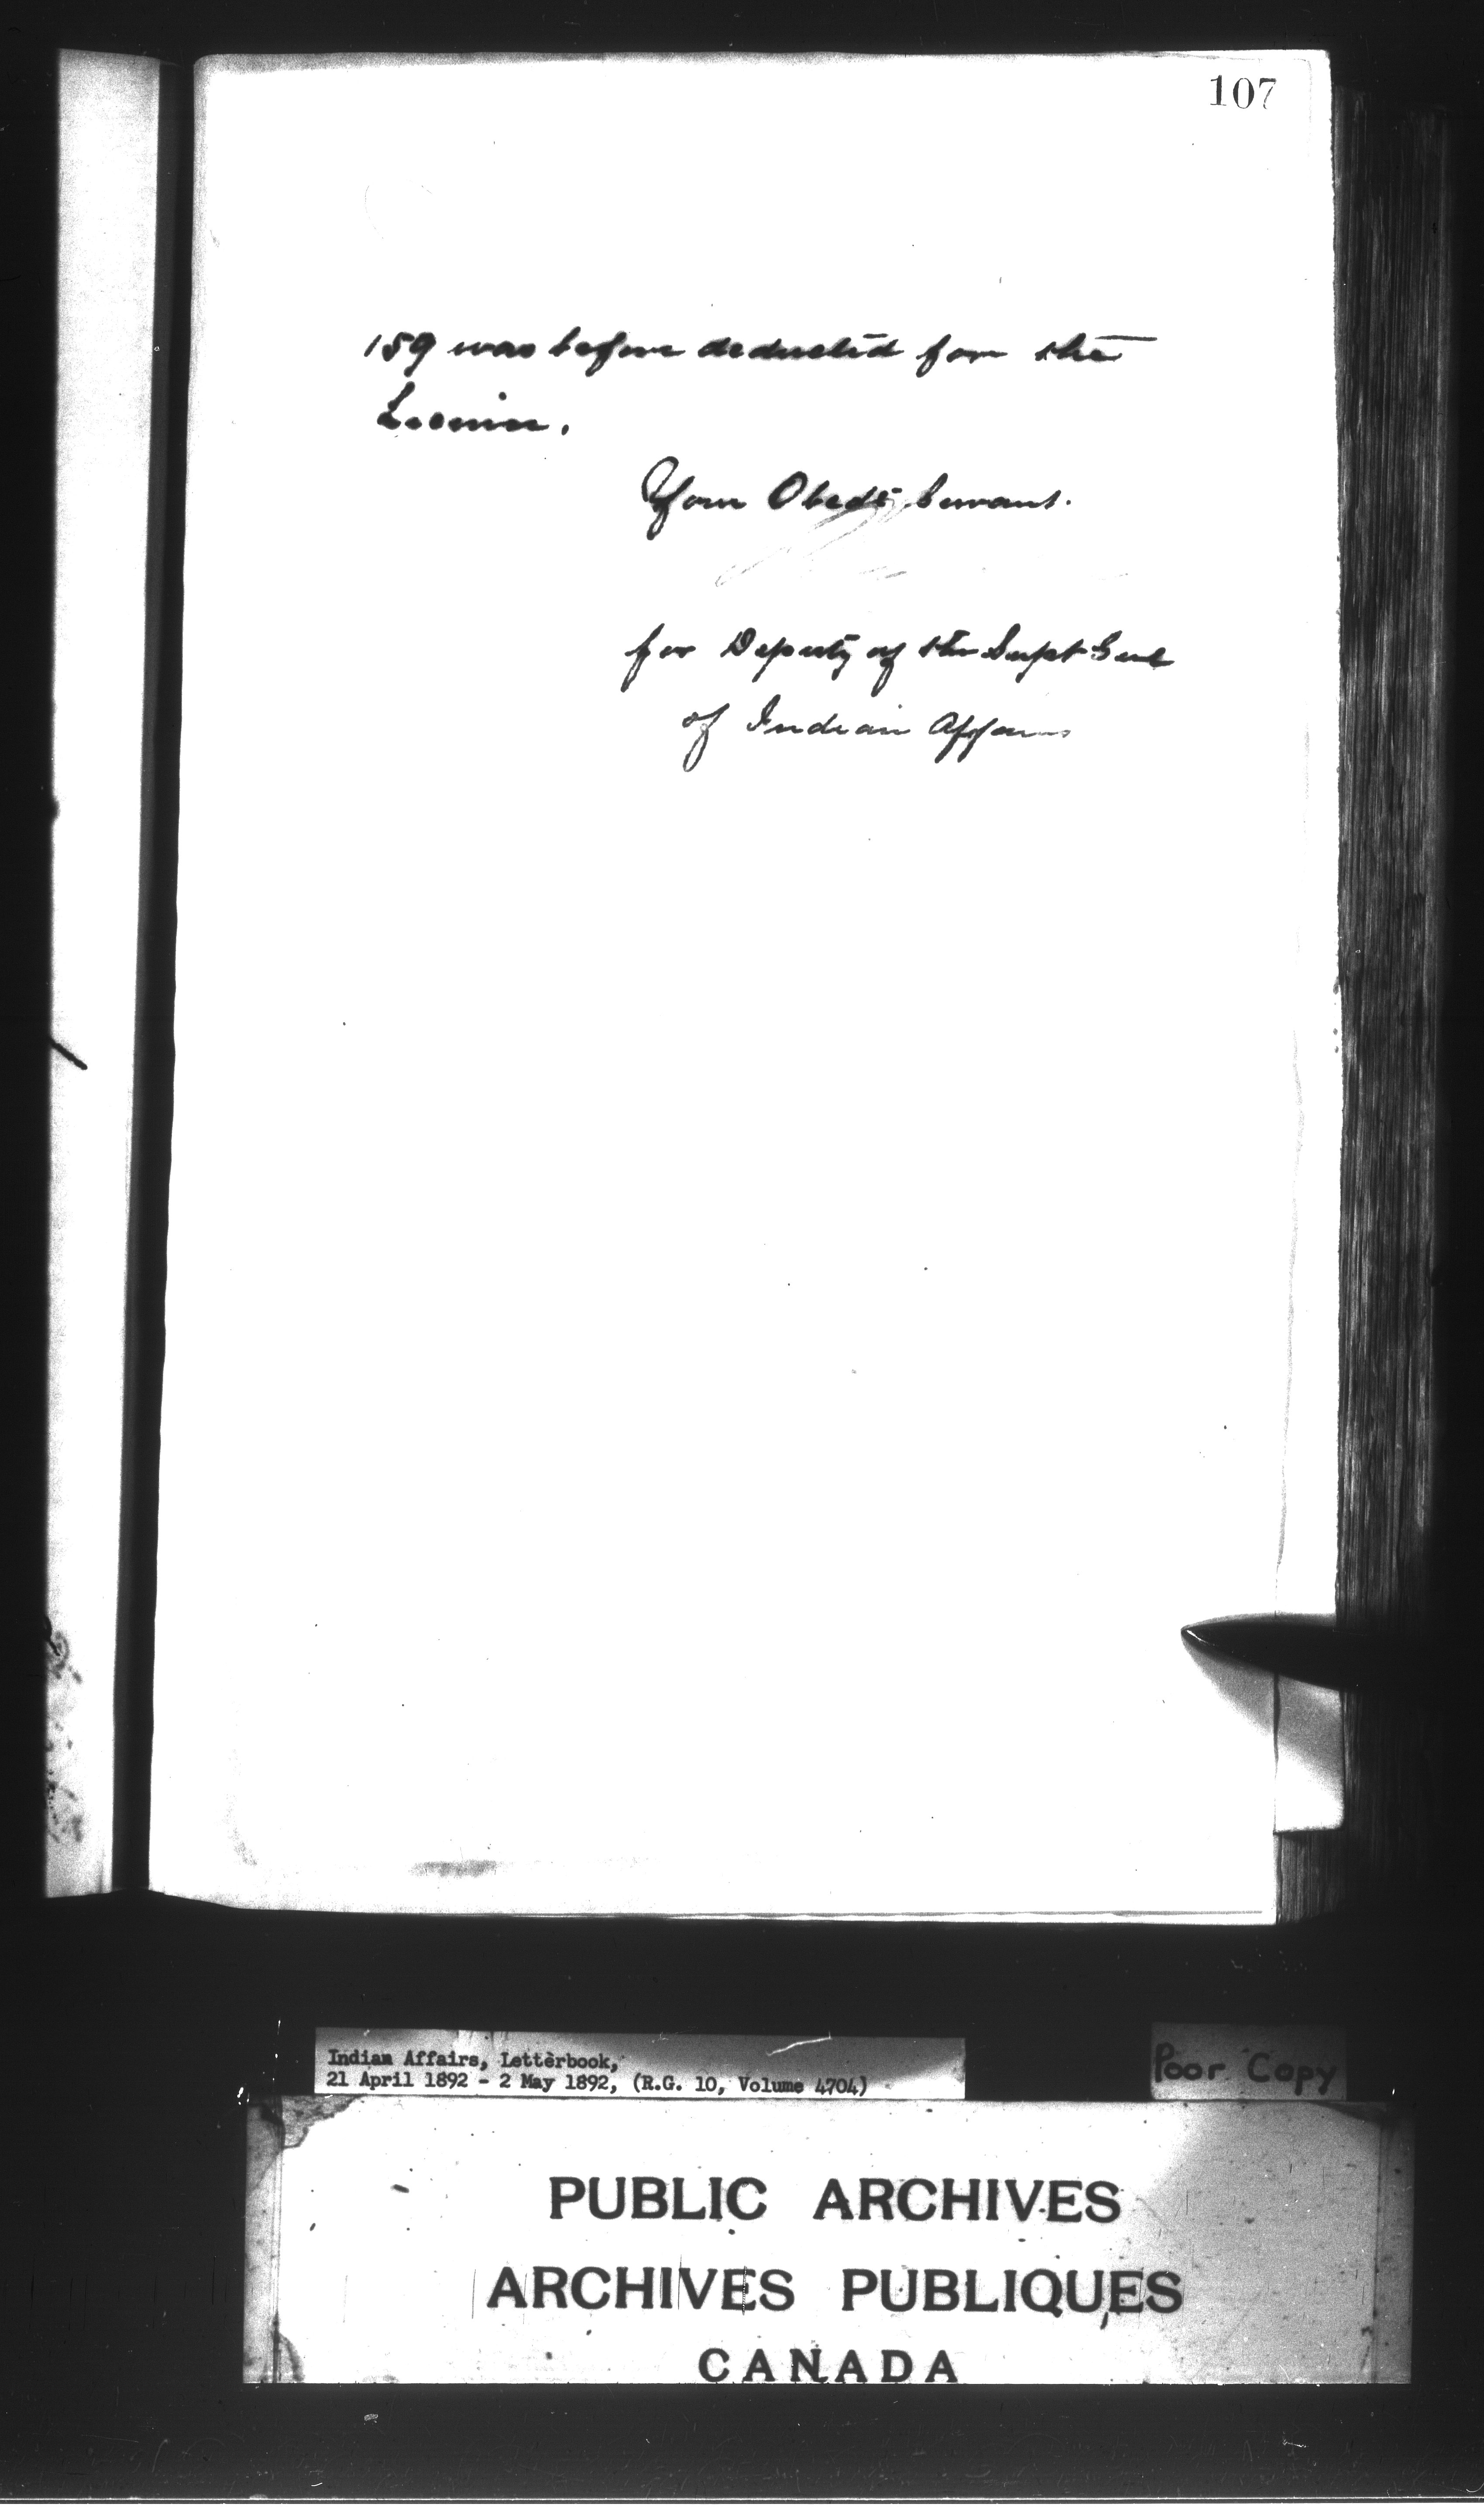 107
159 was before deducted for the
Your Obedt Servant.
for Deputy of the Supt Genl
of Indian Affairs
Indian Affairs, Letterbook,
21 April 1892 - 2 May 1892, (R.G. 10, Volume 4704)
Poor Copy
PUBLIC ARCHIVES
ARCHIVES PUBLIQUES
CANADA